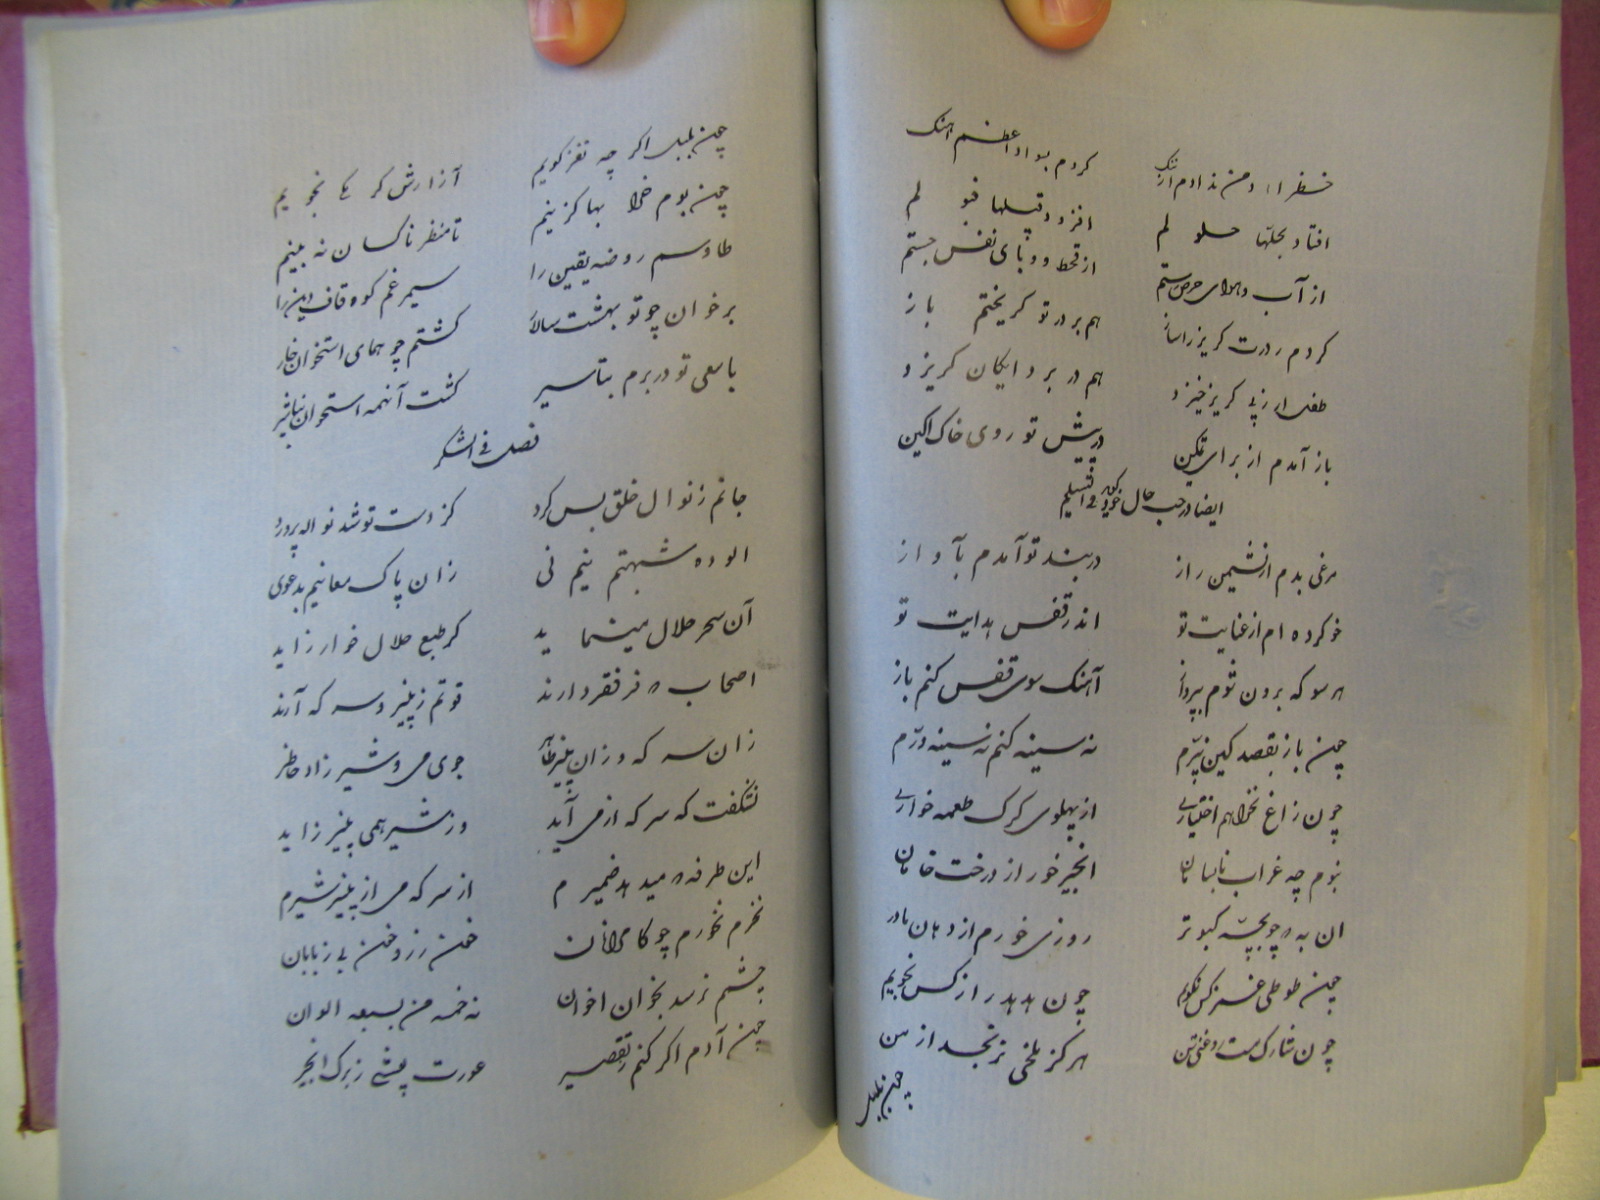 کردم بسواد اعظم آهنک
افتاد بحلّها حلو لم
افزود قبلها قبو لم
از آب و هوای حرص رستم
از قحط و وبای نفس جستم
کردم ز درت کریز ز آساز
هم بر در تو کریختم باز
طفل ار ز پی کریز خیزد
هم در بر دایکان کریزد
باز آمدم از برای تمکین
در پیش تو روی خاک آکین
ایضا در حسب حال خود کوید و تسلیم
مرغی بدم از نشیمن راز
در بند تو آمدم بآواز
خو کرده ام از عنایت تو
اندر قفس هدایت تو
هر سو که برون شوم بپرواز
آهنک سوی قفس کنم باز
چون باز بقصد کین نپرم
نه سینه کنم نه سینه درّم
چون زاغ نخواهم اختیاری
از پهلوی کرک طعمه خواری
نبوم چه غراب نابسامان
انجیر خور از درخت خامان
ان به که چو بچّه کبوتر
روزی خورم از دهان مادر
چون طوطی عشر کس نکویم
چون هدهد راز کس نجویم
چون شارک مست روغنی تن
هرکز ملخی نرنجد از من
چون بلبل
چون بلبل اکر چه نغز کویم
آزارش کرمکی نجویم
چون بوم خرابها کزینم
تا منظر ناکسان نه بینم
طاوسم روضه یقین را
سیمرغم کوه قاف دین را
برخوان چو تو بهشت سالار
کشتم چو همای استخوان خار
با سعی تو در برم بتاسیر
کشت آنهمه استخوان تباشیر
فصل فی الشکر
جانم ز نوال خلق بس کرد
کز دست تو شد نواله پرورد
الوده شبهتم نیم نی
زان پاک معانیم بدعوی
آن سحر حلال مینماید
کز طبع حلال خوار زاید
اصحاب که فر فقر دارند
قوتم ز پنیر و سرکه آرند
زان سرکه و زان پنیر ظاهر
جوی می و شیر زاد خاطر
نشکفت که سرکه از می آید
وز شیر همی پنیر زاید
این طرفه که میدهد ضمیرم
از سرکه می از پنیر شیرم
نخرم نخورم چو کامرانان
خون رز و خون بی زبانان
چشم نرسد بخوان اخوان
نه خمسه من بسبعه الوان
چون آدم اکر کنم تقصیر
عورت پوشی ز برک انجیر